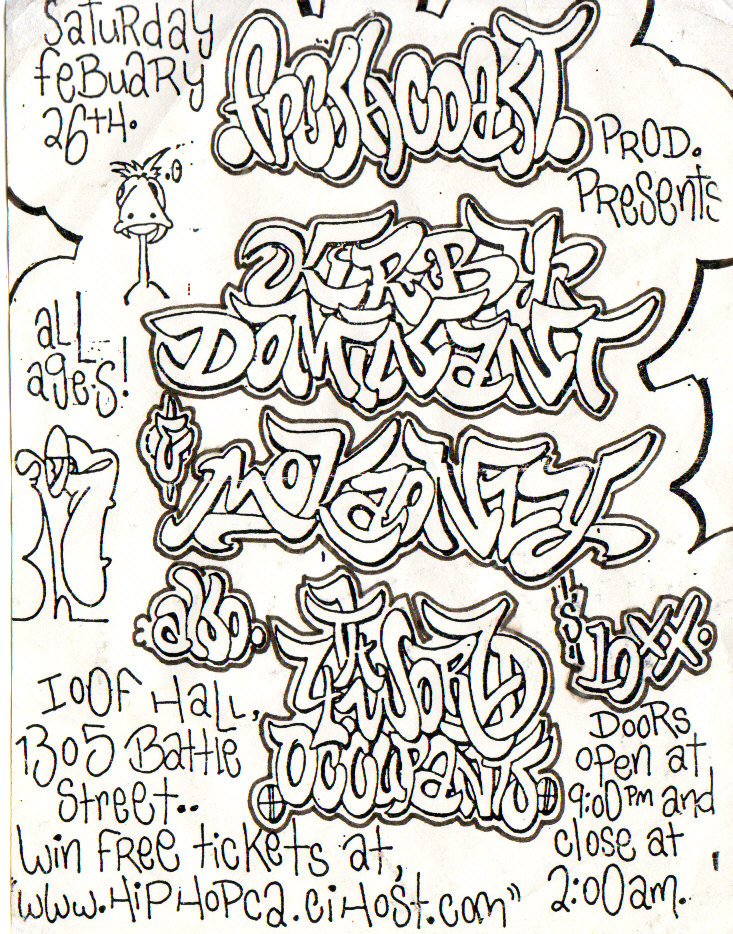 Saturday
Febuary
26th.
Freshcoast
Prod.
Presents
Kirby
Dominant
all
ages!
&
Mokonzy
also.
4th
World
Occupants
$10xx.
IOOF Hall,
1305 Battle
Street..
Win free tickets at,
"www.HiPHoPca.ciHost.com"
Doors
open at
9:00pm and
close at
2:00am.